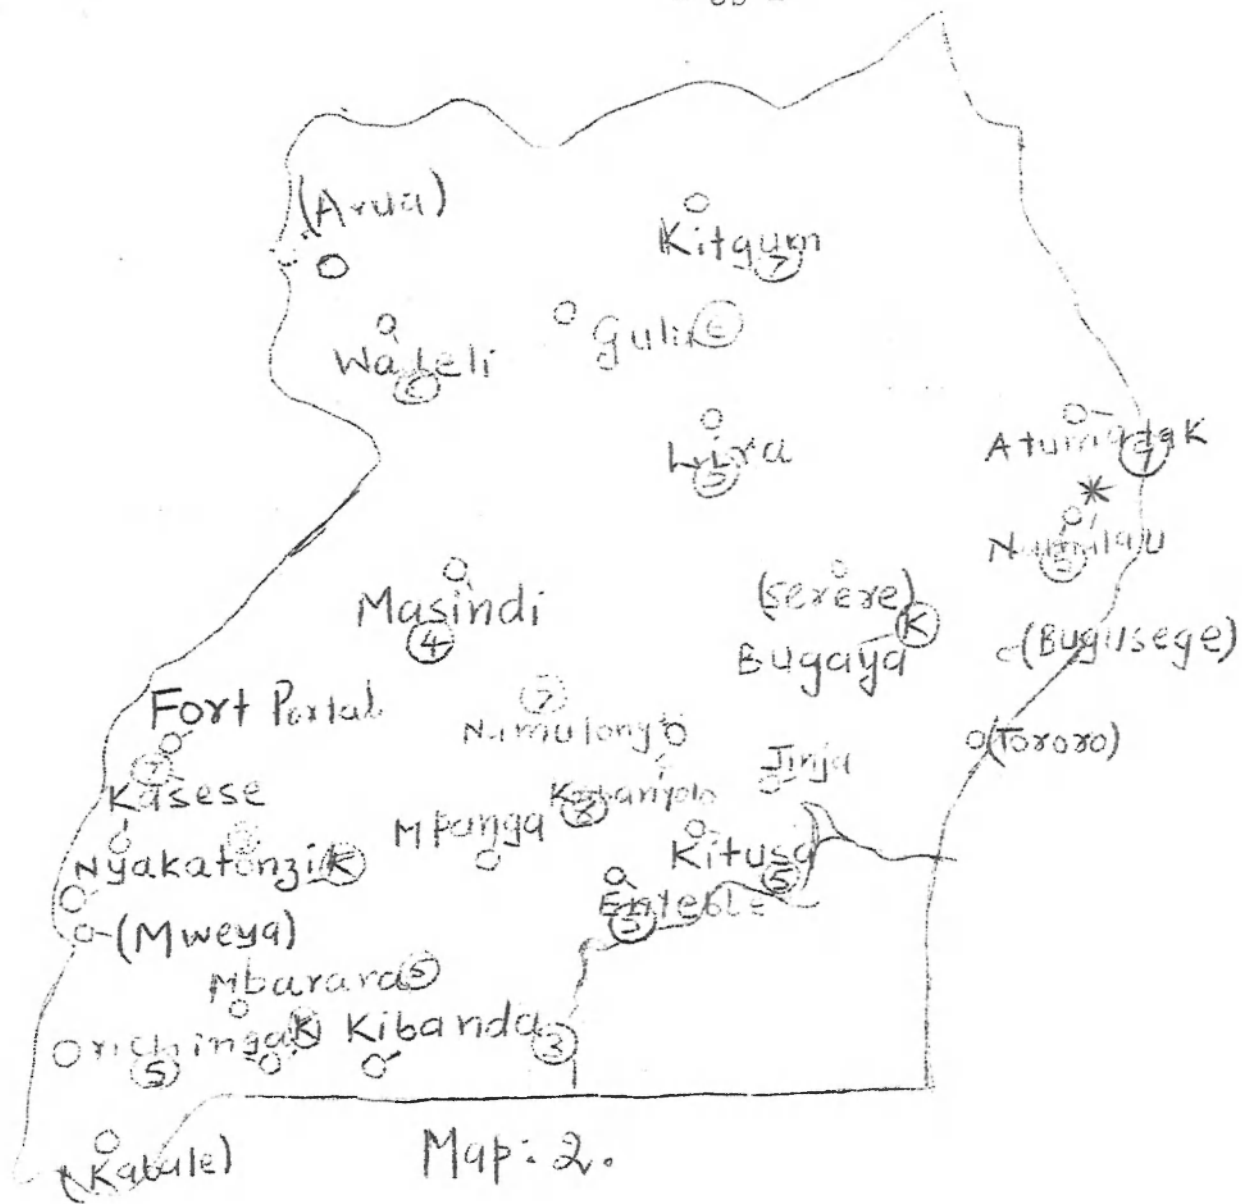 (Arua)
Kitgum
7
Guli
Wadeli
Lira
5
AtumataK
*
Namalau
5
Masindi
4
(Serere)
K
Bugaya
(Bugusege)
Fort Portal
7
Namulong
(Tororo)
7
Kasese
Jinja
Kabanyolo
Mpanga
Kitusa
5
Nyakatonzi K
Entebbe
5
(Mweya)
Mbarara 5
Orichinga K
5
Kibanda
3
(Kabale)
Map: 2.